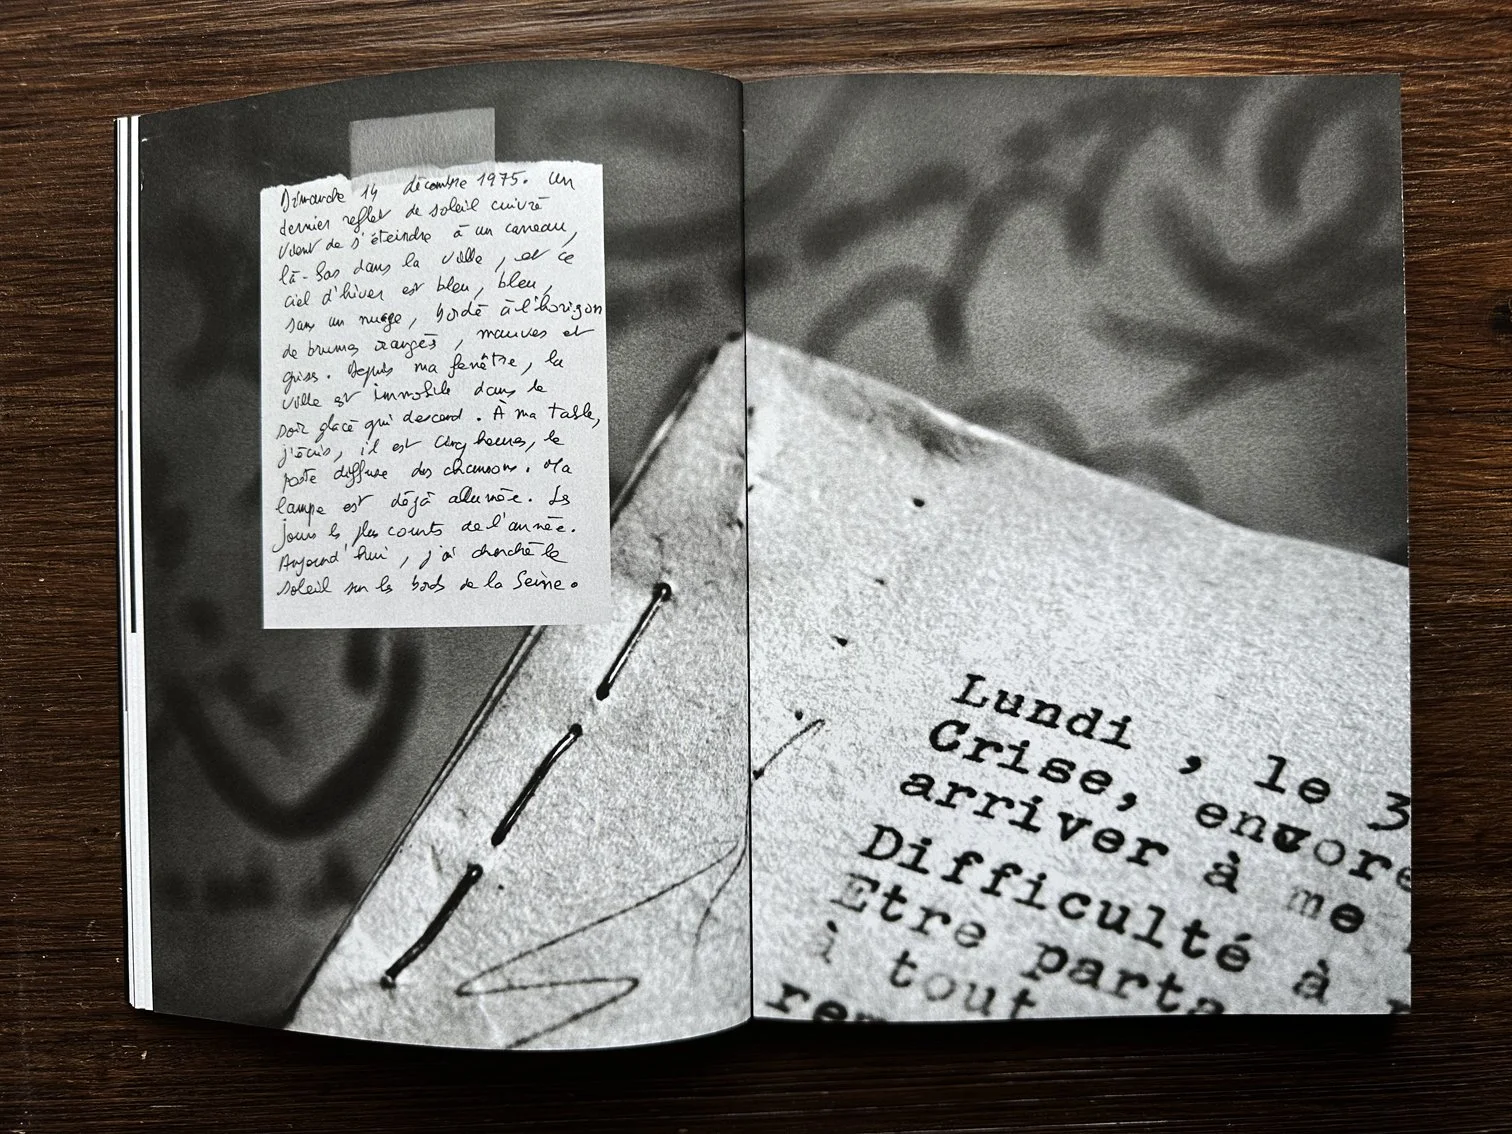 Dimanche 14 décembre 1975. Un
dernier reflet de soleil cuivré
vient de s'éteindre à un carreau,
là-bas dans la ville, et ce
ciel d'hiver est bleu, bleu,
sans un nuage, bordé à l'horizon
de brumes orangés, mauves et
gris. Depuis ma fenêtre, la
ville est immobile dans le
soir glacé qui descend. À ma table,
j'écris, il est cinq heures, le
poste diffuse des chansons. Ma
lampe est déjà allumée. Les
jours les plus courts de l'année.
Aujourd'hui, j'ai cherché le
soleil sur les bords de la Seine.
Lundi , le 3
Crise, encore
arriver à me
Difficulté à
Etre parta
i tout